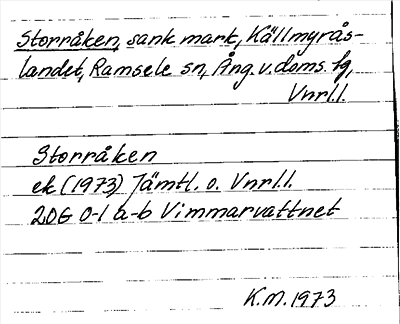 Storråken, sank mark, Källmyrås-
landet, Ramsele sn, Ång. v. doms. tg,
Vnrl.l.
Storråken
ek (1973) Jämtl. o. Vnrl.l.
20G 0-1 a-b Vimmarvattnet
K.M. 1973